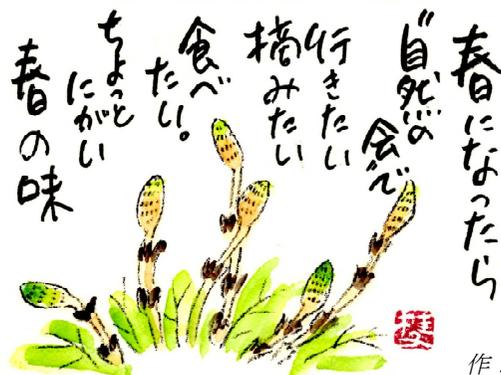 春になったら
"自然の
会"で
行きたい
摘みたい
食べ
たい。
ちょっと
にがい
春の味
作